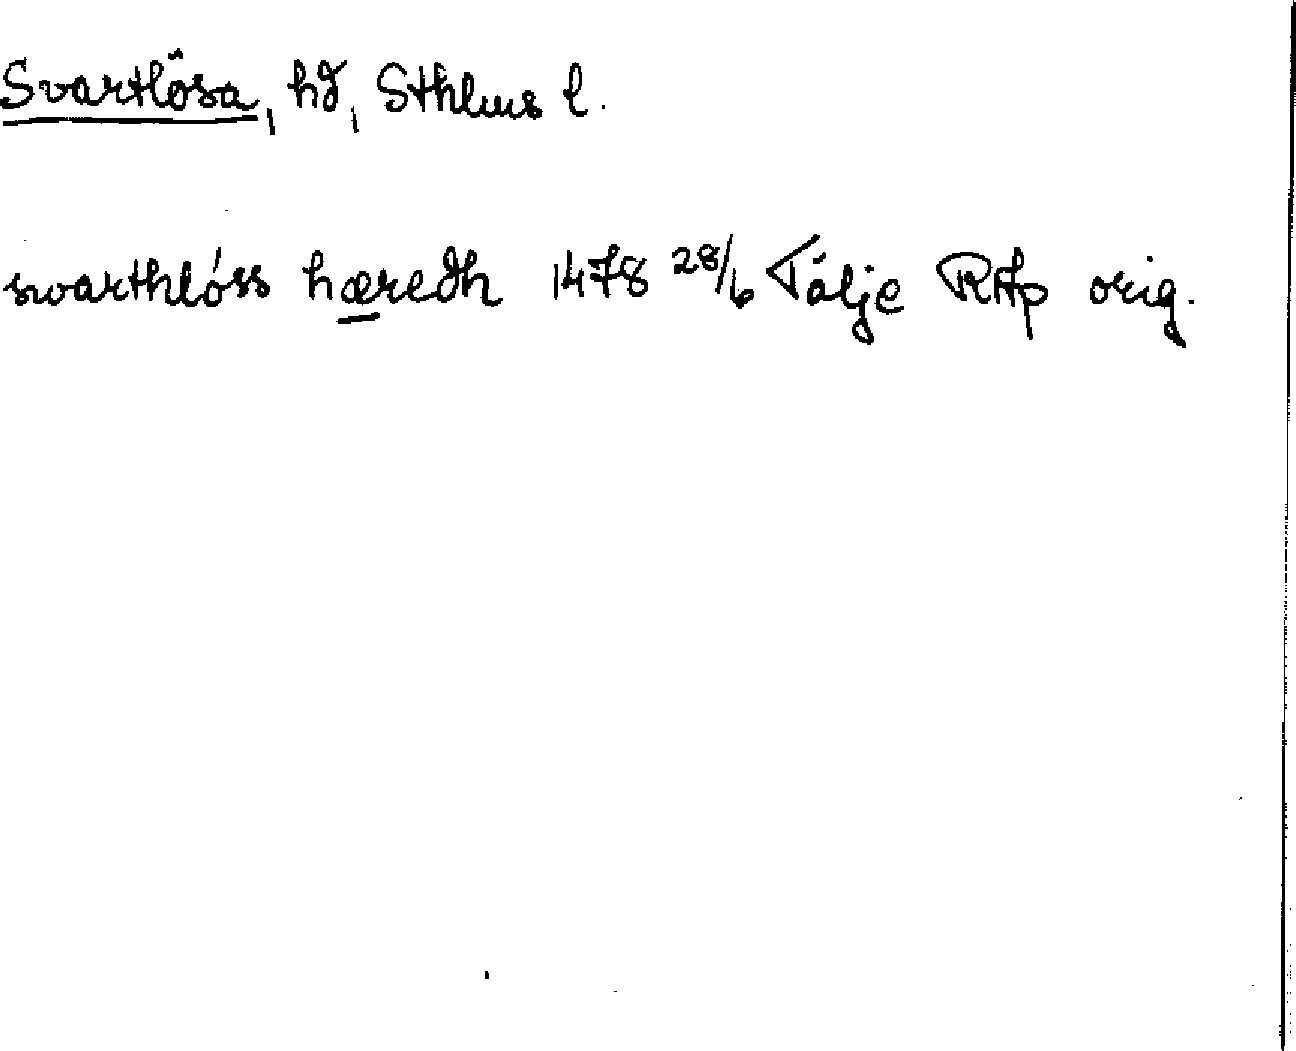 Svartlösa, hd, Sthlms l.
svarthlóss hæredh 1478 28/6 Tälje RAp orig.